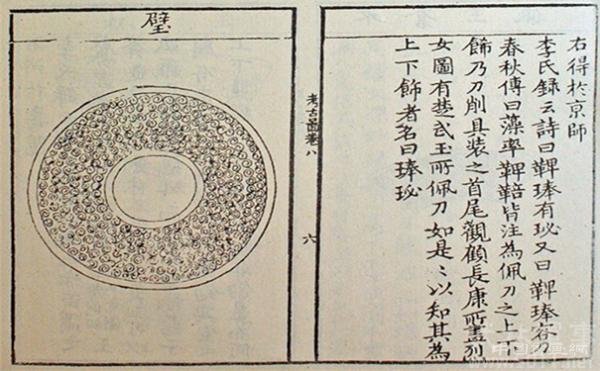 右得於京師
李氏録云詩曰鞞琫有珌又曰鞞琫容刀
春秋傳曰藻率鞞鞛皆注為佩刀之上下
飾乃刀削具裝之首尾觀顧長康所畫列
女圖有楚武王所佩刀如是〻以知其為
上下飾者名曰琫珌
考古圖卷八
六
璧